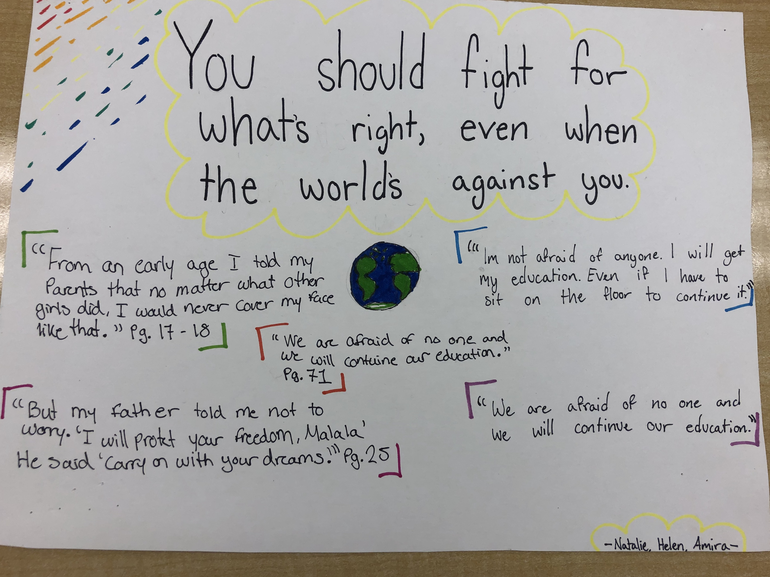 You should fight for
what's right, even when
the world's against you.
"From an early age I told my
Parents that no matter what other
girls did, I would never cover my face
like that." Pg. 17-18
"Im not afraid of anyone. I will get
my education. Even if I have to
sit on the floor to continue it."
"We are afraid of no one and
we will contuine our education."
Pg. 71
"But my father told me not to
worry. 'I will protct your freedom, Malala'
He said 'Carry on with your dreams.'" Pg. 25
"We are afraid of no one and
we will continue our education."
-Natalie, Helen, Amira-